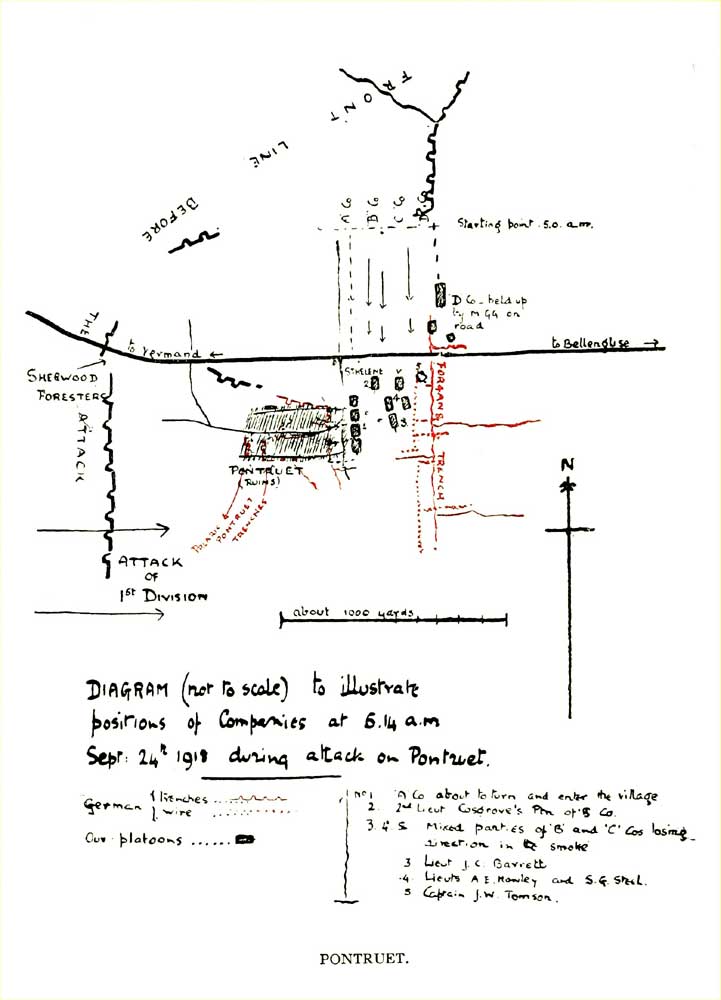 THE LINE BEFORE ATTACK
FRONT
A Co
B Co
C Co
D Co
Starting point 5.0. a.m.
D Co - held up
by M GG on
road
to Vermand ←
to Bellenglise →
SHERWOOD
FORESTERS
ST HELENE
2
V
4
3
5
1
FORGANS TRENCH
PONTRUET
(RUINS)
PONTRUET
TRENCHES
N
ATTACK
OF
1st DIVISION
about 1000 yards
DIAGRAM (not to scale) to illustrate
positions of Companies at 6.14 a.m
Sept: 24th 1918 during attack on Pontruet.
German { trenches
wire
Our platoons ......
No 1 'A Co about to turn and enter the village
2. 2nd Lieut Cosgrove's Ptn of 'B Co.
3. 4 & 5 Mixed parties of 'B' and 'C' Cos losing
direction in the smoke
3 Lieut J.C. Barrett
4. Lieuts A E. Hawley and S.G. Steel.
5 Captain J.W. Tomson.
PONTRUET.